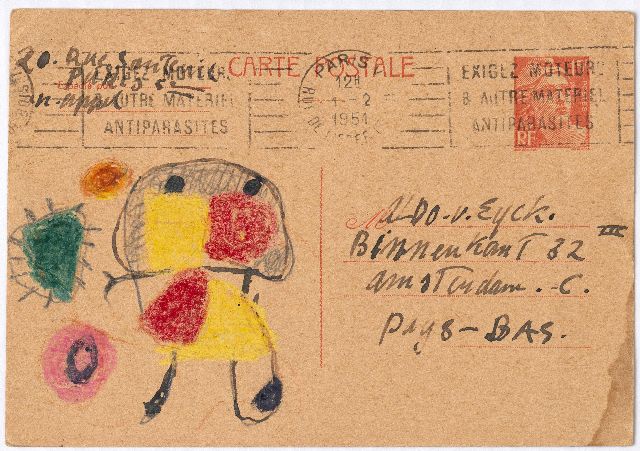 20. Rue Santeuil
Paris 5e
CARTE POSTALE
EXIGEZ MOTEURS
& AUTRE MATERIEL
ANTIPARASITES
PARIS
12H
1-2
1951
RUE DE
EXIGEZ MOTEURS
& AUTRE MATERIEL
ANTIPARASITES
RF
M
Aldo.v.Eyck.
Binnenkant 32 III
amsterdam.-C.
Pays-BAS.